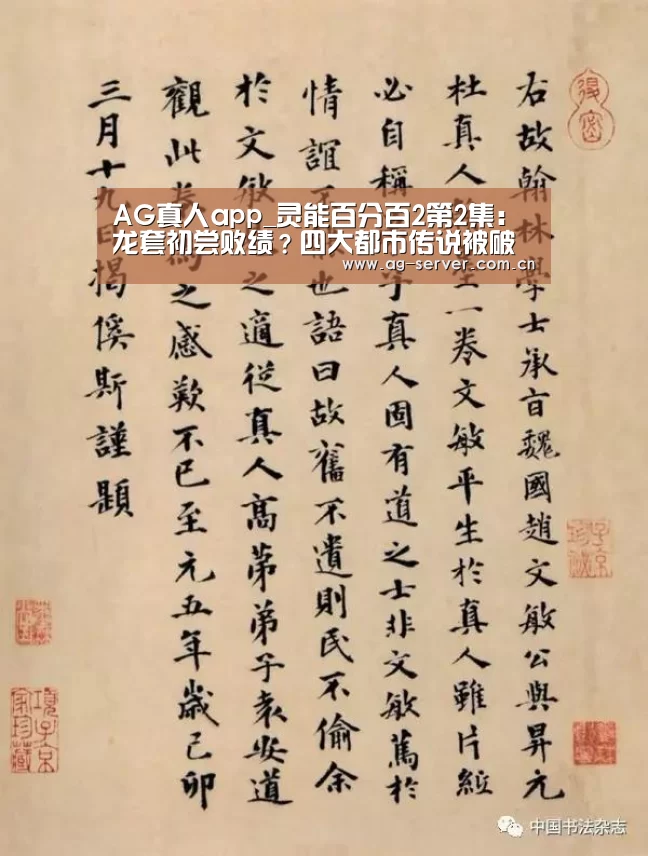 右故翰林學士承旨魏國趙文敏公與昇元
杜真人一卷文敏平生於真人雖片紙
必自稱真人固有道之士非文敏篤於
情誼也語曰故舊不遺則民不偷余
於文敏之適從真人高第弟子袁安道
觀此卷為之感歎不已至元五年歲己卯
三月十九日揭傒斯謹題
AG真人app_灵能百分百2第2集：
龙套初尝败绩？四大都市传说被破
www.ag-server.com.cn
項子京
家珍藏
子京
中国书法杂志